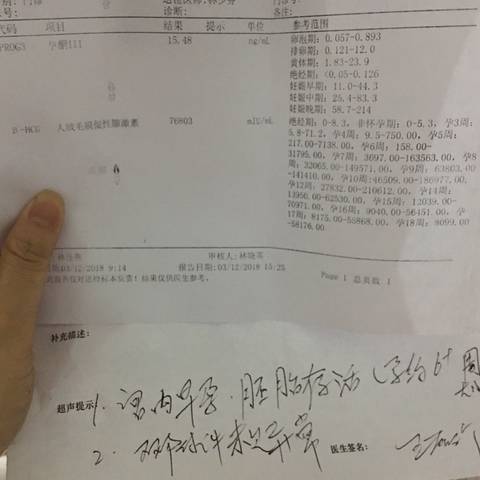 诊断:
代码 项目 结果 提示 单位 参考范围
PROG3 孕酮III 15.48 ng/mL 卵泡期: 0.057-0.893
排卵期: 0.121-12.0
黄体期: 1.83-23.9
绝经期: <0.05-0.126
妊娠早期: 11.0-44.3
妊娠中期: 25.4-83.3
妊娠晚期: 58.7-214
B-HCG 人绒毛膜促性腺激素 76803 mIU/mL 绝经期: 0-8.3, 非怀孕期: 0-5.3, 孕3周:
5.8-71.2, 孕4周: 9.5-750.00, 孕5周:
217.00-7138.00, 孕6周: 158.00-
31795.00, 孕7周: 3697.00-163563.00, 孕8
周: 32065.00-149571.00, 孕9周: 63803.00
-141410.00, 孕10周:46509.00-186977.00,
孕12周: 27832.00-210612.00, 孕14周:
13950.00-62530.00, 孕15周: 12039.00-
70971.00, 孕16周: 9040.00-56451.00, 孕
17周: 8175.00-55868.00, 孕18周: 8099.00
-58176.00
审核人:林晓英
03/12/2018 9:14 报告日期:03/12/2018 15:25
Page 1 总页数 1
报告仅对送检标本负责!结果仅供医生参考。
补充描述:
超声提示: 1. 宫内早孕.胚胎存活 (孕约6+周
大小)
2. 双侧附件未见异常 医生签名: